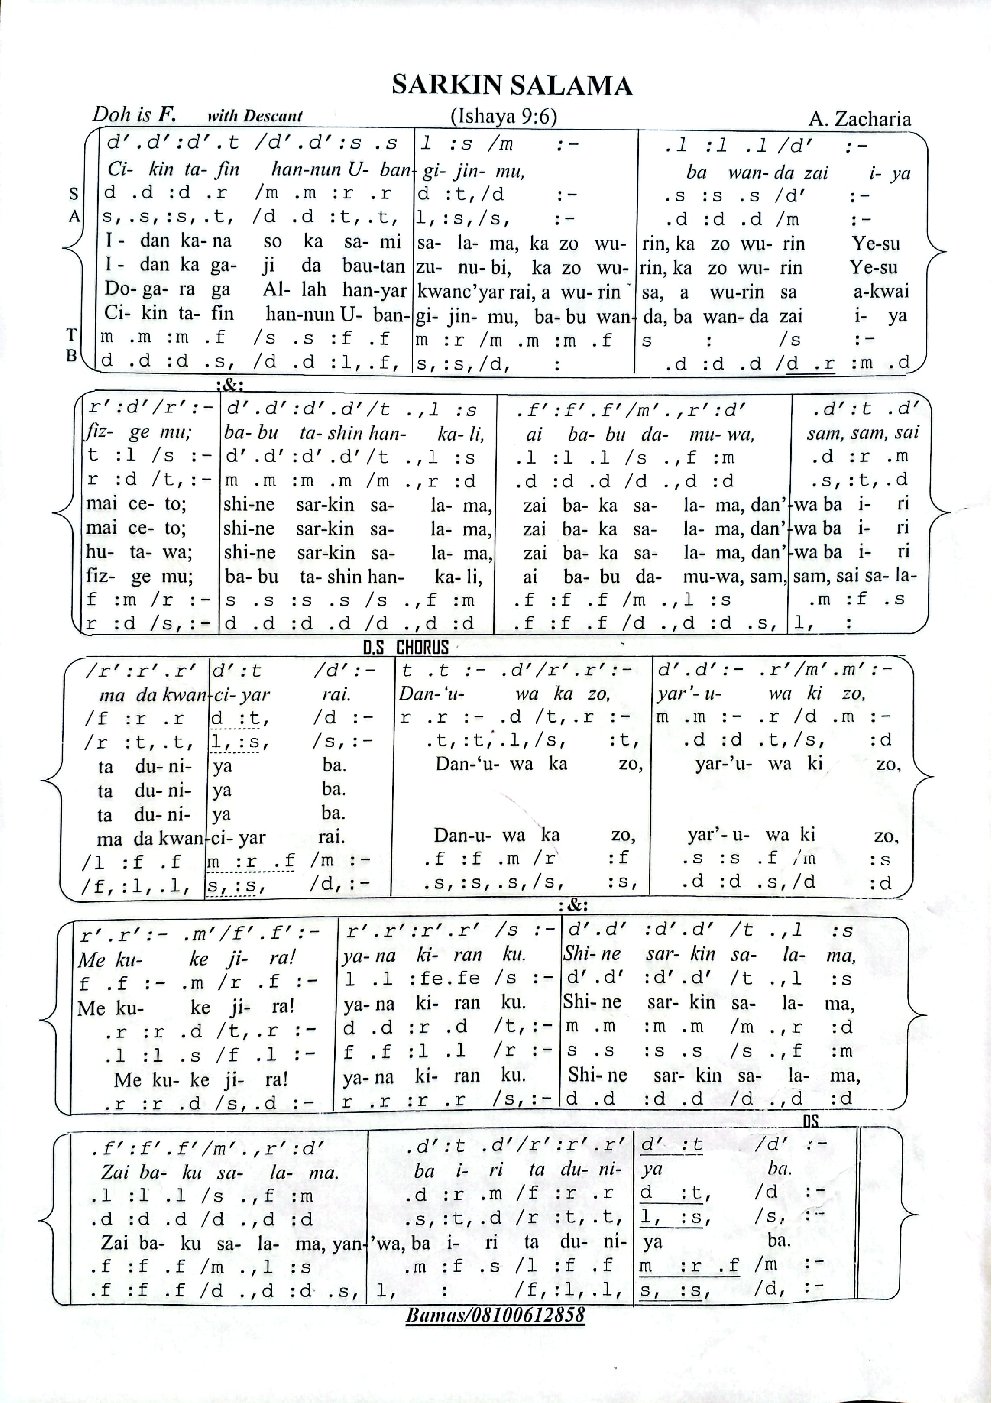 SARKIN SALAMA
Doh is F. with Descant (Ishaya 9:6) A. Zacharia
d' .d' :d' .t /d' .d' :s .s l :s /m :- .l :l .l /d' :-
Ci- kin ta- fin han-nun U- ban- gi- jin- mu, ba wan- da zai i- ya
S d .d :d .r /m .m :r .r d :t, /d :- .s :s .s /d' :-
A s, .s, :s, .t, /d .d :t, .t, l, :s, /s, :- .d :d .d /m :-
I- dan ka- na so ka sa- mi sa- la- ma, ka zo wu- rin, ka zo wu- rin Ye-su
I- dan ka ga- ji da bau-tan zu- nu- bi, ka zo wu- rin, ka zo wu- rin Ye-su
Do- ga- ra ga Al- lah han-yar kwanc'yar rai, a wu- rin sa, a wu-rin sa a-kwai
Ci- kin ta- fin han-nun U- ban- gi- jin- mu, ba- bu wan- da, ba wan- da zai i- ya
T m .m :m .f /s .s :f .f m :r /m .m :m .f s : /s :-
B d .d :d .s, /d .d :l, .f, s, :s, /d, : .d :d .d /d .r :m .d
:&:
r' :d' /r' :- d' .d' :d' .d' /t .,l :s .f' :f' .f' /m' .,r' :d' .d' :t .d'
fiz- ge mu; ba- bu ta- shin han- ka- li, ai ba- bu da- mu- wa, sam, sam, sai
t :l /s :- d' .d' :d' .d' /t .,l :s .l :l .l /s .,f :m .d :r .m
r :d /t, :- m .m :m .m /m .,r :d .d :d .d /d .,d :d .s, :t, .d
mai ce- to; shi-ne sar-kin sa- la- ma, zai ba- ka sa- la- ma, dan'- wa ba i- ri
mai ce- to; shi-ne sar-kin sa- la- ma, zai ba- ka sa- la- ma, dan'- wa ba i- ri
hu- ta- wa; shi-ne sar-kin sa- la- ma, zai ba- ka sa- la- ma, dan'- wa ba i- ri
fiz- ge mu; ba- bu ta- shin han- ka- li, ai ba- bu da- mu-wa, sam, sam, sai sa- la-
f :m /r :- s .s :s .s /s .,f :m .f :f .f /m .,l :s .m :f .s
r :d /s, :- d .d :d .d /d .,d :d .f :f .f /d .,d :d .s, l, :
D.S CHORUS
/r' :r' .r' d' :t /d' :- t .t :- .d' /r' .r' :- d' .d' :- .r' /m' .m' :-
ma da kwan- ci- yar rai. Dan-'u- wa ka zo, yar'- u- wa ki zo,
/f :r .r d :t, /d :- r .r :- .d /t, .r :- m .m :- .r /d .m :-
/r :t, .t, l, :s, /s, :- .t, :t, .l, /s, :t, .d :d .t, /s, :d
ta du- ni- ya ba. Dan-'u- wa ka zo, yar-'u- wa ki zo,
ta du- ni- ya ba.
ta du- ni- ya ba.
ma da kwan- ci- yar rai. Dan-u- wa ka zo, yar'- u- wa ki zo,
/l :f .f m :r .f /m :- .f :f .m /r :f .s :s .f /m :s
/f, :l, .l, s, :s, /d, :- .s, :s, .s, /s, :s, .d :d .s, /d :d
:&:
r' .r' :- .m' /f' .f' :- r' .r' :r' .r' /s :- d' .d' :d' .d' /t .,l :s
Me ku- ke ji- ra! ya- na ki- ran ku. Shi- ne sar- kin sa- la- ma,
f .f :- .m /r .f :- l .l :fe.fe /s :- d' .d' :d' .d' /t .,l :s
Me ku- ke ji- ra! ya- na ki- ran ku. Shi- ne sar- kin sa- la- ma,
.r :r .d /t, .r :- d .d :r .d /t, :- m .m :m .m /m .,r :d
.l :l .s /f .l :- f .f :l .l /r :- s .s :s .s /s .,f :m
Me ku- ke ji- ra! ya- na ki- ran ku. Shi- ne sar- kin sa- la- ma,
.r :r .d /s, .d :- r .r :r .r /s, :- d .d :d .d /d .,d :d
DS
.f' :f' .f' /m' .,r' :d' .d' :t .d' /r' :r' .r' d' :t /d' :-
Zai ba- ku sa- la- ma. ba i- ri ta du- ni- ya ba.
.l :l .l /s .,f :m .d :r .m /f :r .r d :t, /d :-
.d :d .d /d .,d :d .s, :t, .d /r :t, .t, l, :s, /s, :-
Zai ba- ku sa- la- ma, yan- 'wa, ba i- ri ta du- ni- ya ba.
.f :f .f /m .,l :s .m :f .s /l :f .f m :r .f /m :-
.f :f .f /d .,d :d .s, l, : /f, :l, .l, s, :s, /d, :-
Bamas/08100612858